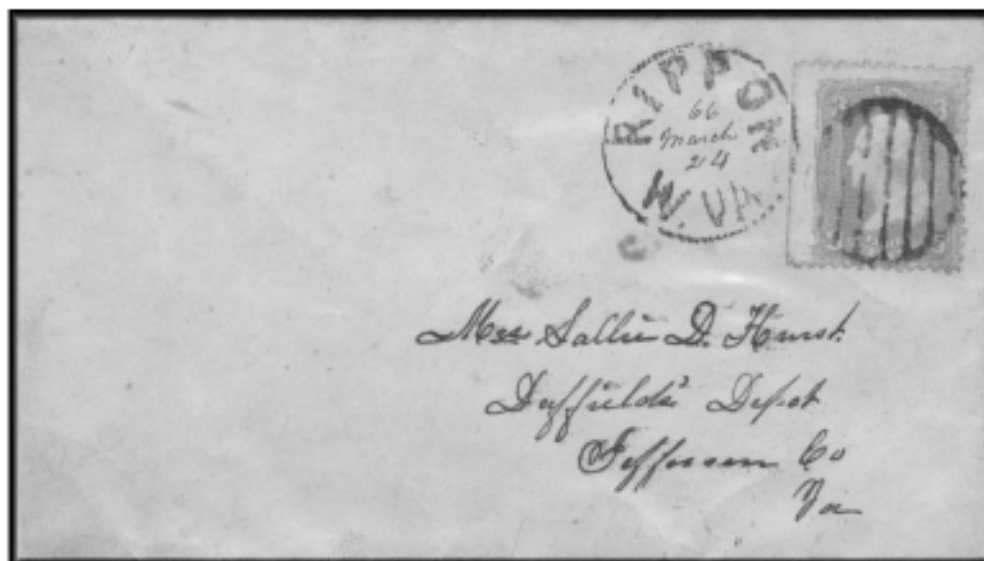 RIPPON
66
March
24
W. VA.
Mrs Sallie D. Hurst.
Duffields' Depot
Jefferson Co
Va